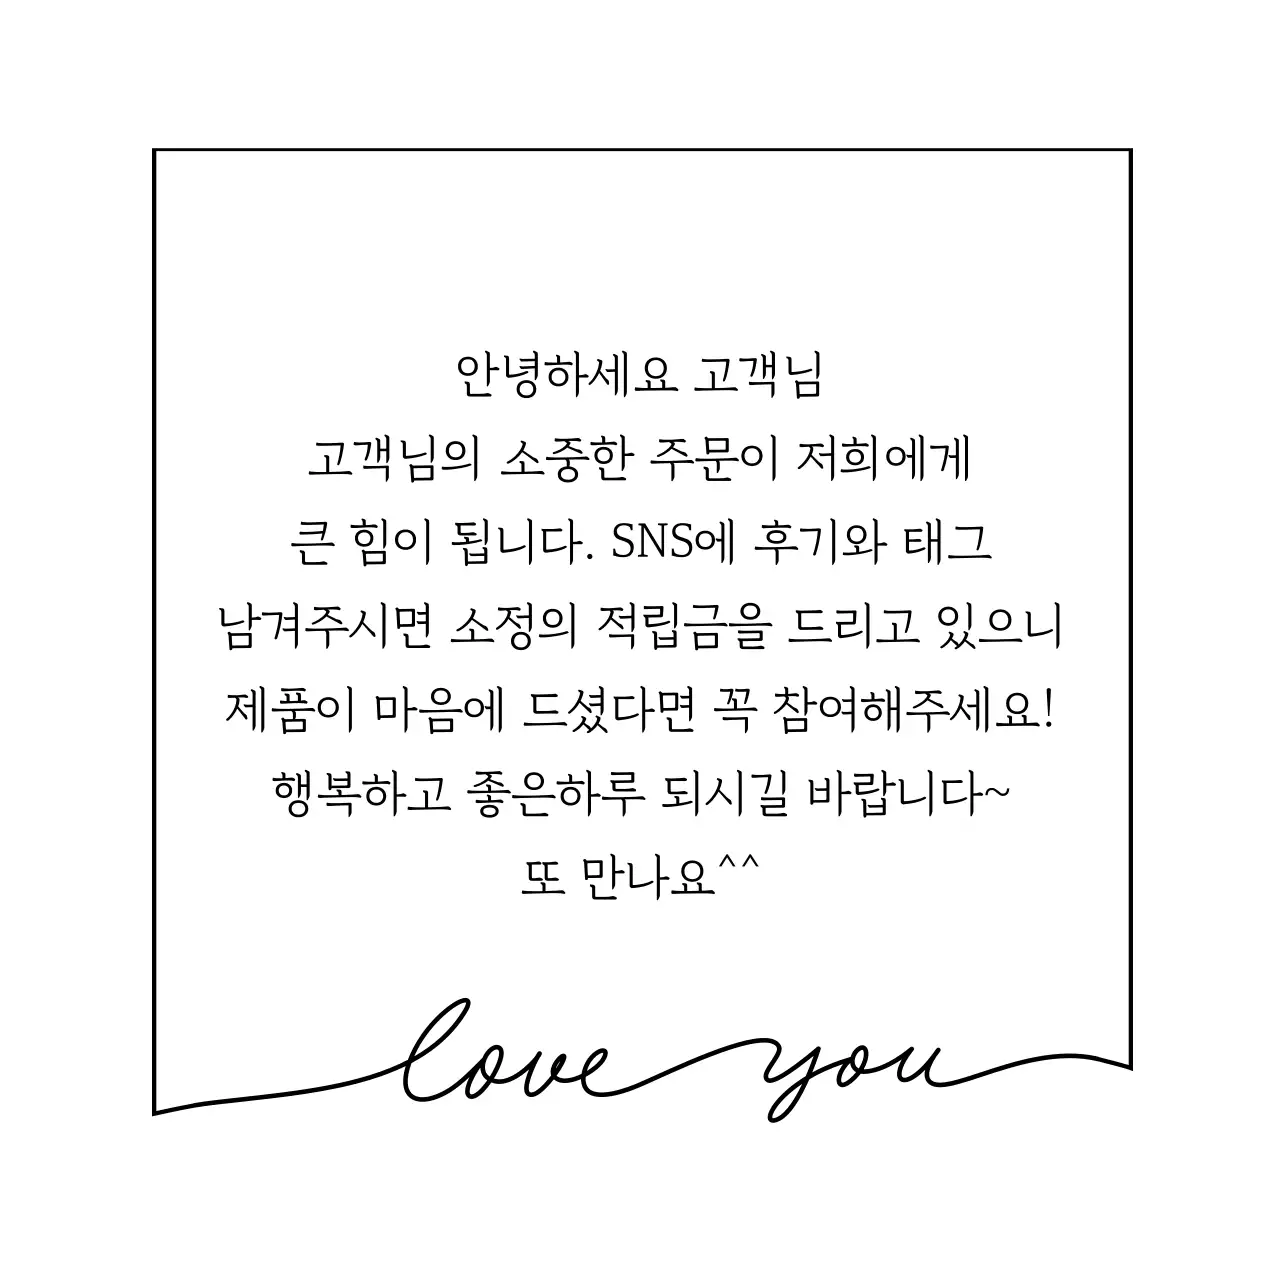 안녕하세요 고객님
고객님의 소중한 주문이 저희에게
큰 힘이 됩니다. SNS에 후기와 태그
남겨주시면 소정의 적립금을 드리고 있으니
제품이 마음에 드셨다면 꼭 참여해주세요!
행복하고 좋은하루 되시길 바랍니다~
또 만나요^^
love you